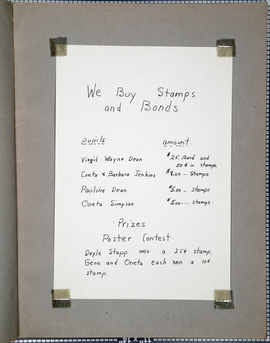 We Buy Stamps
and Bonds
pupils amount
Virgil Wayne Dean $25 Bond and
50¢ in stamps.
Coeta & Barbara Jenkins $8.00 .. Stamps
Pauline Dean $5.00 .. Stamps
Oneta Simpson $5.00 ... stamps.
Prizes
Poster Contest
Doyle Stapp won a 25¢ stamp.
Gene and Oneta each won a 10¢
stamp.